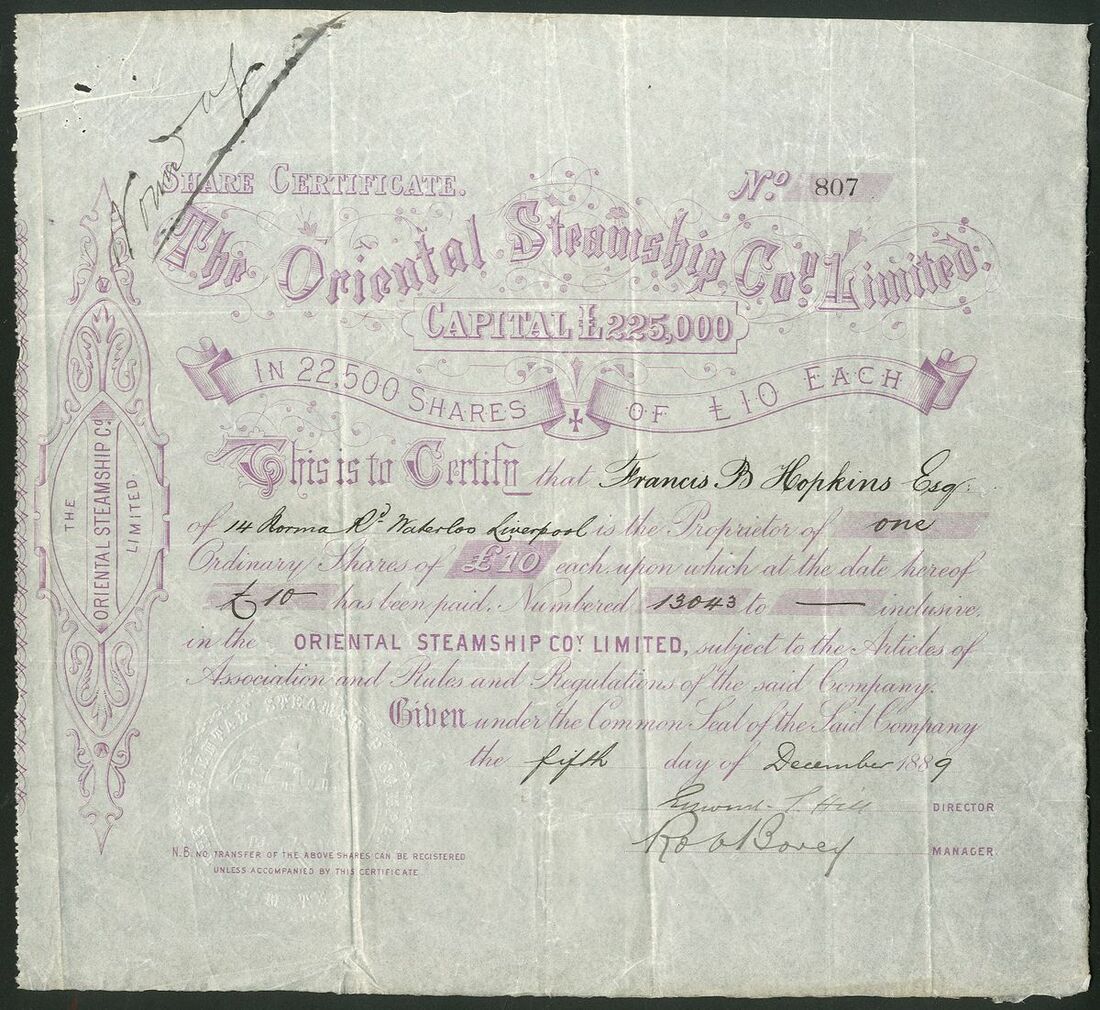 SHARE CERTIFICATE.
No. 807
The Oriental Steamship Coy. Limited.
CAPITAL £225,000
IN 22,500 SHARES OF £10 EACH
This is to Certify that Francis B Hopkins Esq.
of 14 Norma Rd. Waterloo Liverpool is the Proprietor of one
Ordinary Shares of £10 each upon which at the date hereof
£10 has been paid. Numbered 13043 to — inclusive
in the ORIENTAL STEAMSHIP COY. LIMITED, subject to the Articles of
Association and Rules and Regulations of the said Company.
Given under the Common Seal of the Said Company
the fifth day of December 1889
Hill DIRECTOR
MANAGER.
N.B. NO TRANSFER OF THE ABOVE SHARES CAN BE REGISTERED
UNLESS ACCOMPANIED BY THIS CERTIFICATE
THE
ORIENTAL STEAMSHIP CO.
LIMITED.